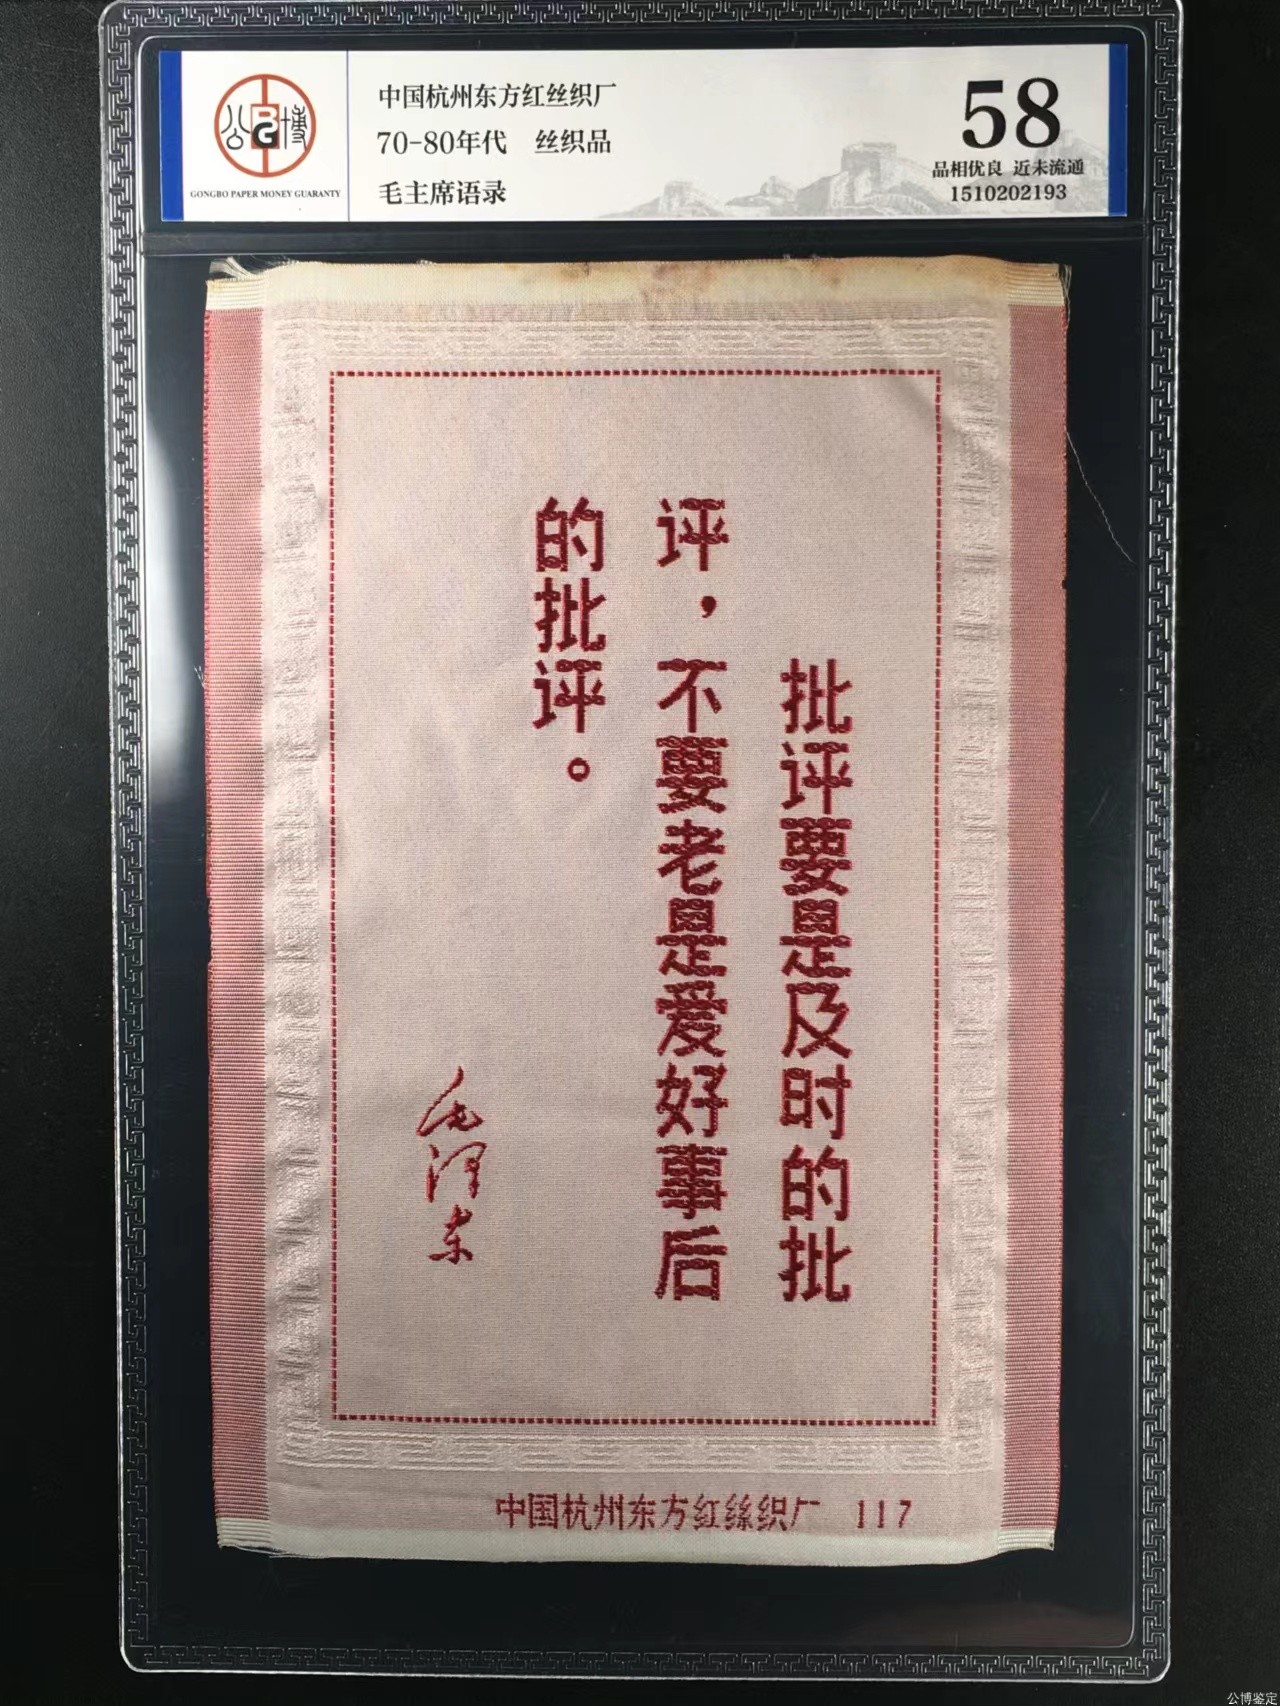 公博
BG
GONGBO PAPER MONEY GUARANTY
中国杭州东方红丝织厂
70-80年代 丝织品
毛主席语录
58
品相优良 近未流通
1510202193
批评要是及时的批
评，不要老是爱好事后
的批评。
毛泽东
中国杭州东方红丝织厂 117
公博鉴定